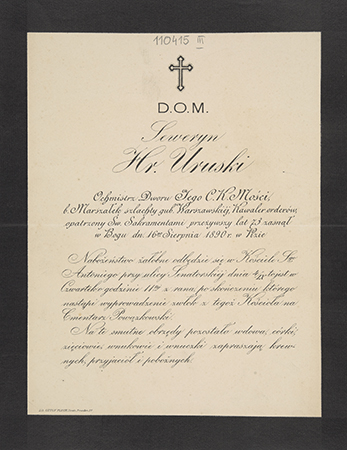 110415 III
D.O.M.
Seweryn
Hr. Uruski
Ochmistrz Dworu Jego C. K. Mości,
b. Marszałek szlachty gub. Warszawskiéj, Kawaler orderów,
opatrzony Św. Sakramentami przeżywszy lat 73 zasnął
w Bogu dn. 16go Sierpnia 1890 r. w
Nabożeństwo żałobne odbędzie się w Kościele Św.
Antoniego przy ulicy Senatorskiéj dnia to jest w
Czwartek o godzinie 11ej z rana, po skończeniu którego
nastąpi wyprowadzenie zwłok z tegoż Kościoła na
Cmentarz Powązkowski.
Na te smutne obrzędy pozostała wdowa, córki,
zięciowie, wnukowie i wnuczki zapraszają krew-
nych, przyjaciół i pobożnych.